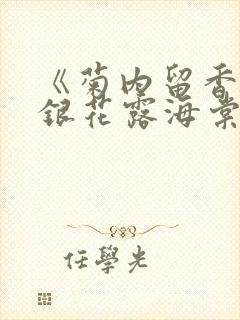 《菊内留香
銀花露海棠
任學光